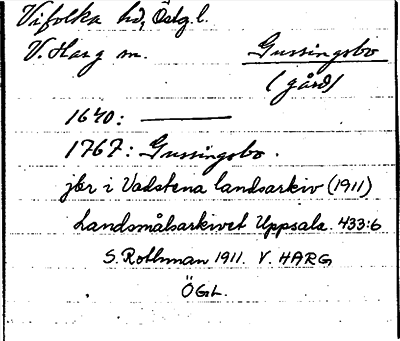 Vifolka hd, Östg. l.
V. Harg sn. Gussingsbo
(gård)
1640: ———
1767: Gussingsbo.
jbr i Vadstena landsarkiv (1911)
Landsmålsarkivet Uppsala. 433:6
S. Rothman 1911. V. HARG
ÖGL.